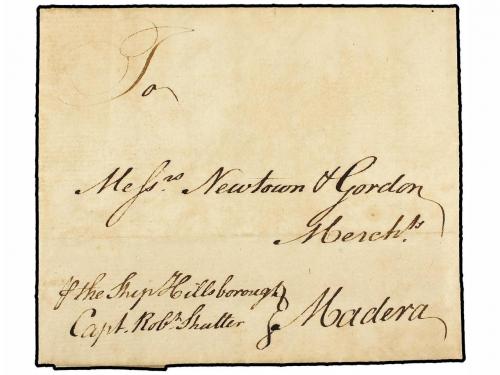 To
Messrs Newtown & Gordon
Merchts
⅌ the Ship Hillsborough
Capt. Robt Shutter
Madera